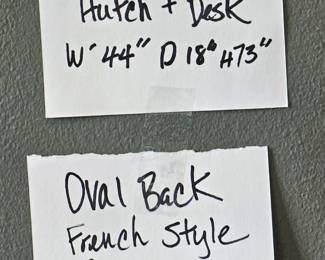 Hutch + Desk
W 44" D 18" H73"
Oval Back
French Style